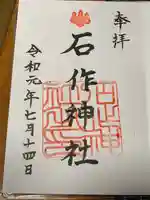 奉拝
石作神社
令和元年七月十四日